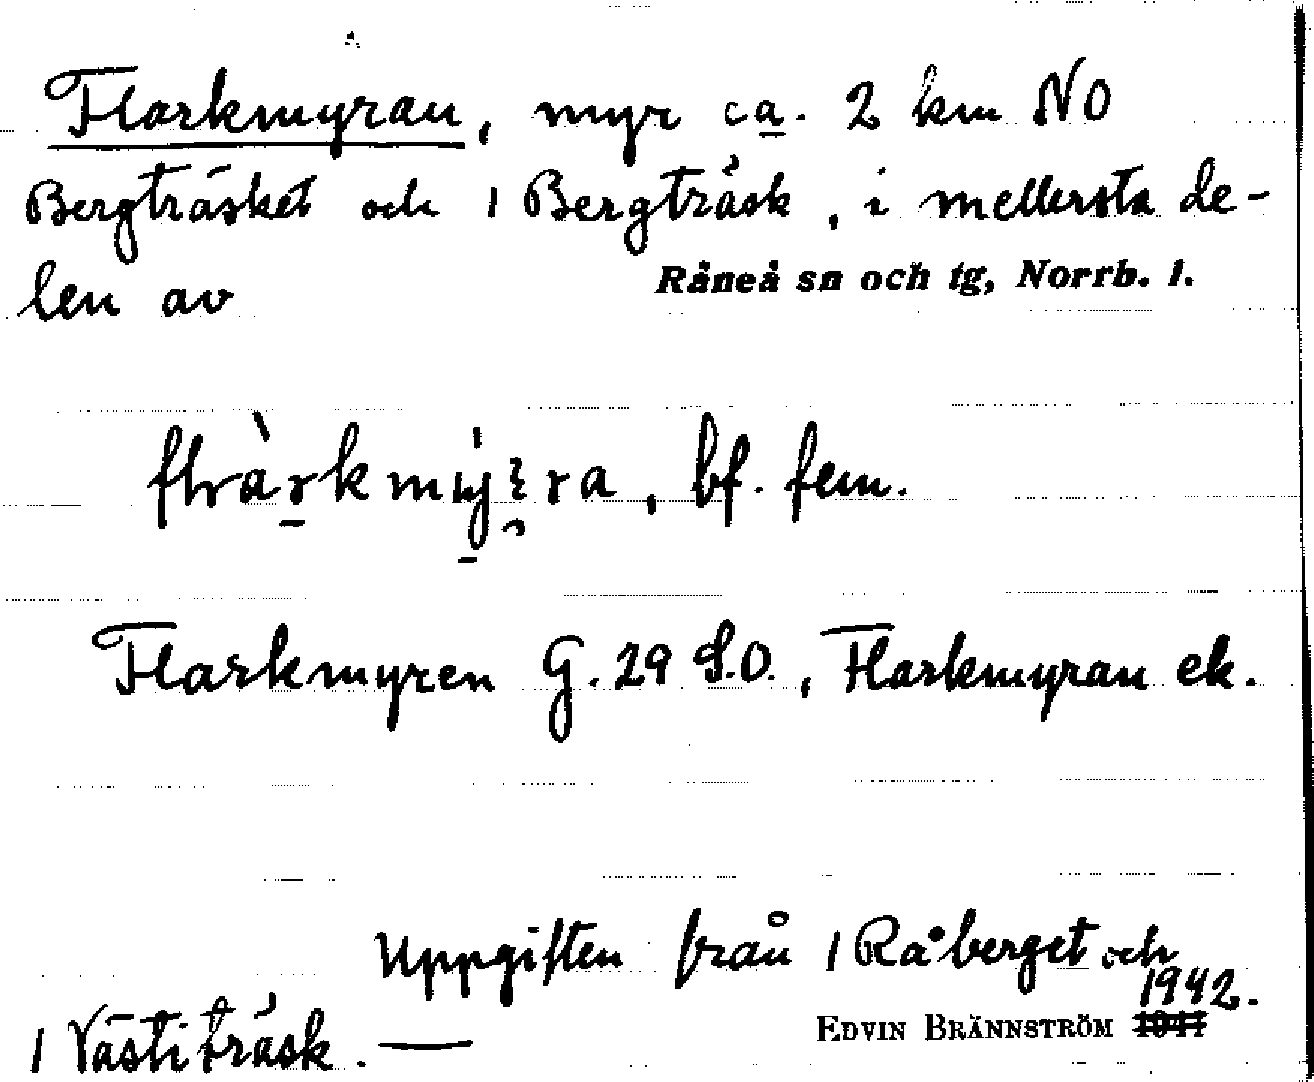 Flarkmyran, myr ca. 2 km NO
Bergträsket och 1 Bergträsk, i mellersta de-
len av Råneå sn och tg, Norrb. l.
bf. fem.
Flarkmyren G. 29 S.O., Flarkmyran ek.
Uppgiften från 1 Råberget och
1 Västiträsk. —
1942.
EDVIN BRÄNNSTRÖM 1941